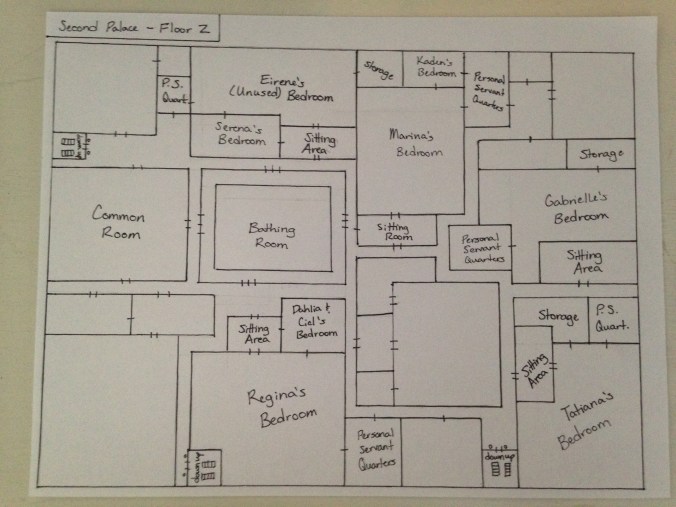 Second Palace - Floor 2
P.S.
Quart.
Eirene's
(Unused) Bedroom
Storage
Kaden's
Bedroom
Personal
Servant
Quarters
Serena's
Bedroom
Sitting
Area
Marina's
Bedroom
down up
Storage
Common
Room
Bathing
Room
Sitting
Room
Personal
Servant
Quarters
Gabrielle's
Bedroom
Sitting
Area
Sitting
Area
Dahlia &
Ciel's
Bedroom
Storage
P.S.
Quart.
Sitting
Area
Regina's
Bedroom
Tatiana's
Bedroom
Personal
Servant
Quarters
down up
down up